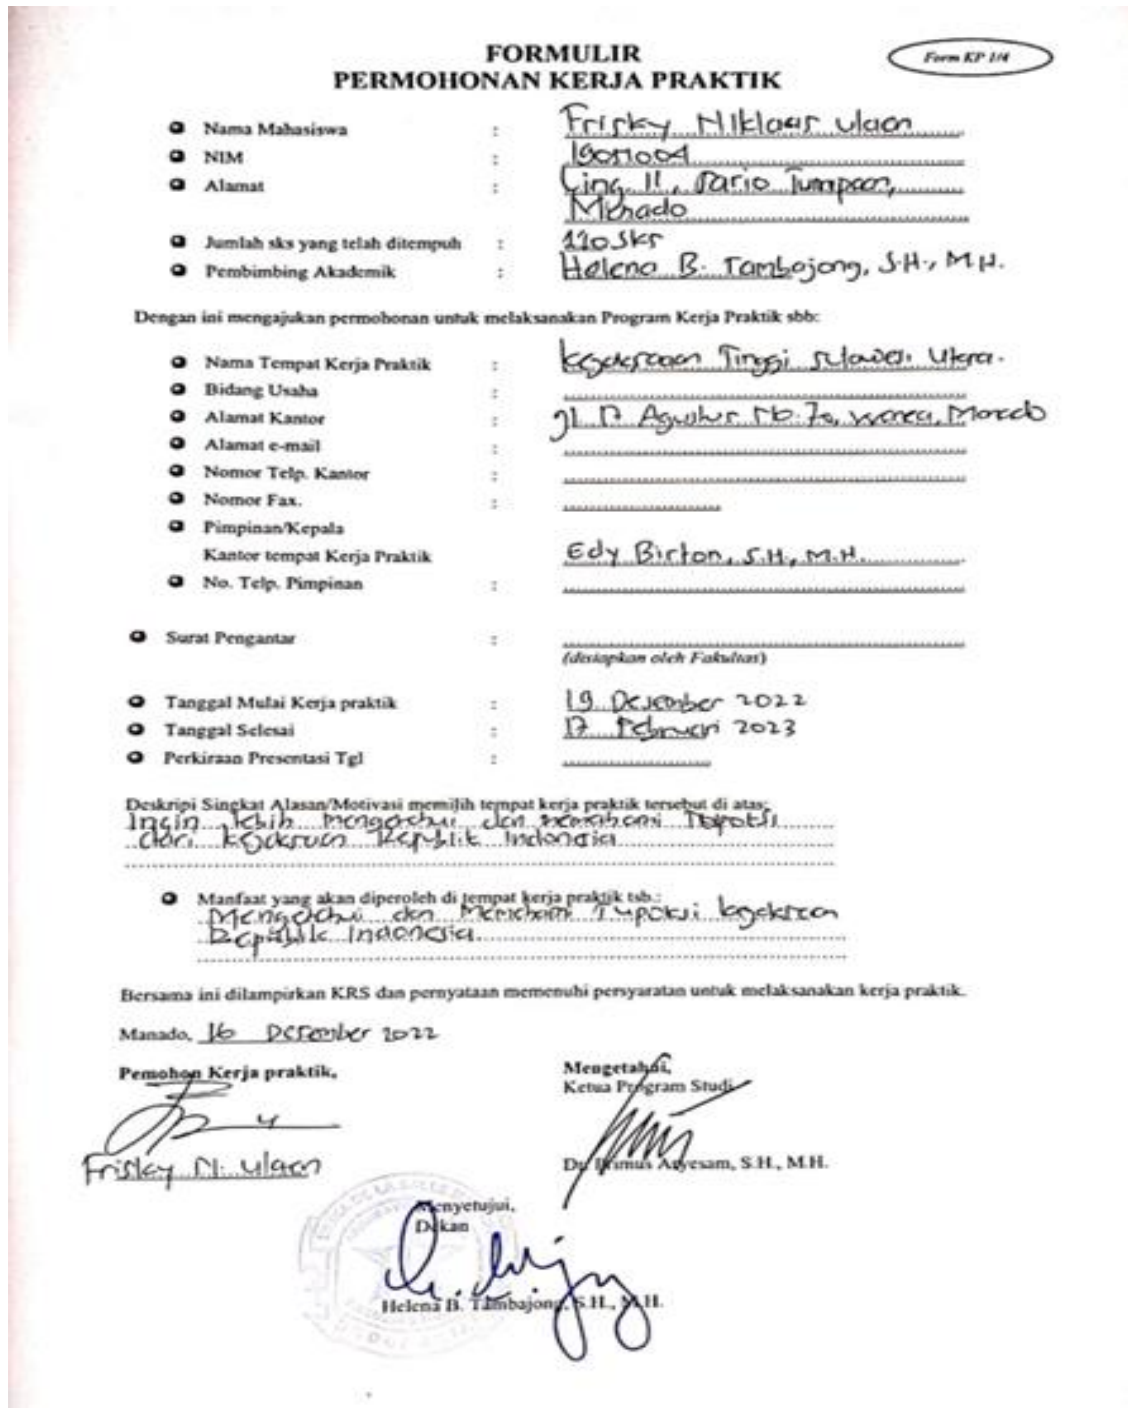 FORMULIR
PERMOHONAN KERJA PRAKTIK
Form KP 1/4
Nama Mahasiswa : Frisky Niklaus Ulaen
NIM : 19011004
Alamat : Ling. II, Sario Tumpaan,
Manado
Jumlah sks yang telah ditempuh : 110 sks
Pembimbing Akademik : Helena B. Tambajong, S.H., M.H.
Dengan ini mengajukan permohonan untuk melaksanakan Program Kerja Praktik sbb:
Nama Tempat Kerja Praktik : Kejaksaan Tinggi Sulawesi Utara.
Bidang Usaha :
Alamat Kantor : Jl. 17 Agustus No. 70, Wanea, Manado
Alamat e-mail :
Nomor Telp. Kantor :
Nomor Fax. :
Pimpinan/Kepala
Kantor tempat Kerja Praktik Edy Birton, S.H., M.H.
No. Telp. Pimpinan :
Surat Pengantar :
(disiapkan oleh Fakultas)
Tanggal Mulai Kerja praktik : 19 Desember 2022
Tanggal Selesai : 17 Februari 2023
Perkiraan Presentasi Tgl :
Deskripi Singkat Alasan/Motivasi memilih tempat kerja praktik tersebut di atas:
Ingin lebih mengetahui dan memahami Tupoksi
dari Kejaksaan Republik Indonesia
Manfaat yang akan diperoleh di tempat kerja praktik tsb.:
Mengetahui dan Memahami Tupoksi Kejaksaan
Republik Indonesia.
Bersama ini dilampirkan KRS dan pernyataan memenuhi persyaratan untuk melaksanakan kerja praktik.
Manado, 16 Desember 2022
Pemohon Kerja praktik,
Mengetahui,
Ketua Program Studi
Frisky N. Ulaen
Dr. Primus Aryesam, S.H., M.H.
Menyetujui,
Dekan
Helena B. Tambajong, S.H., M.H.